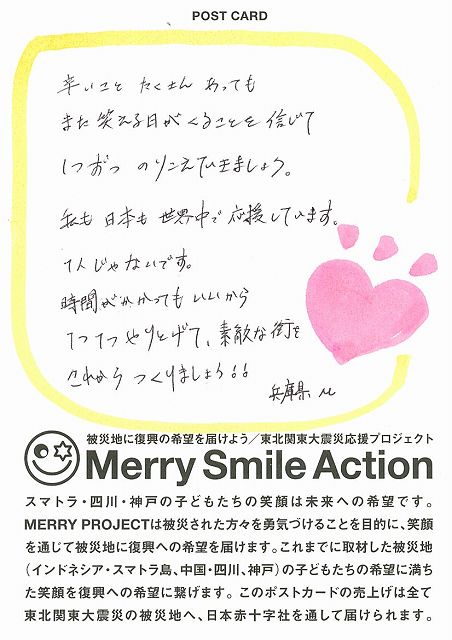 POST CARD
辛いこと たくさん あっても
また 笑える日が くることを 信じて
1つずつ のりこえていきましょう。
私も 日本も 世界中で 応援しています。
1人じゃないです。
時間がかかっても いいから
1つ1つ やりとげて、素敵な街を
これから つくりましょう!!
兵庫県 M
被災地に復興の希望を届けよう／東北関東大震災応援プロジェクト
Merry Smile Action
スマトラ・四川・神戸の子どもたちの笑顔は未来への希望です。
MERRY PROJECTは被災された方々を勇気づけることを目的に、笑顔
を通じて被災地に復興への希望を届けます。これまでに取材した被災地
（インドネシア・スマトラ島、中国・四川、神戸）の子どもたちの希望に満ち
た笑顔を復興への希望に繋げます。このポストカードの売上げは全て
東北関東大震災の被災地へ、日本赤十字社を通して届けられます。